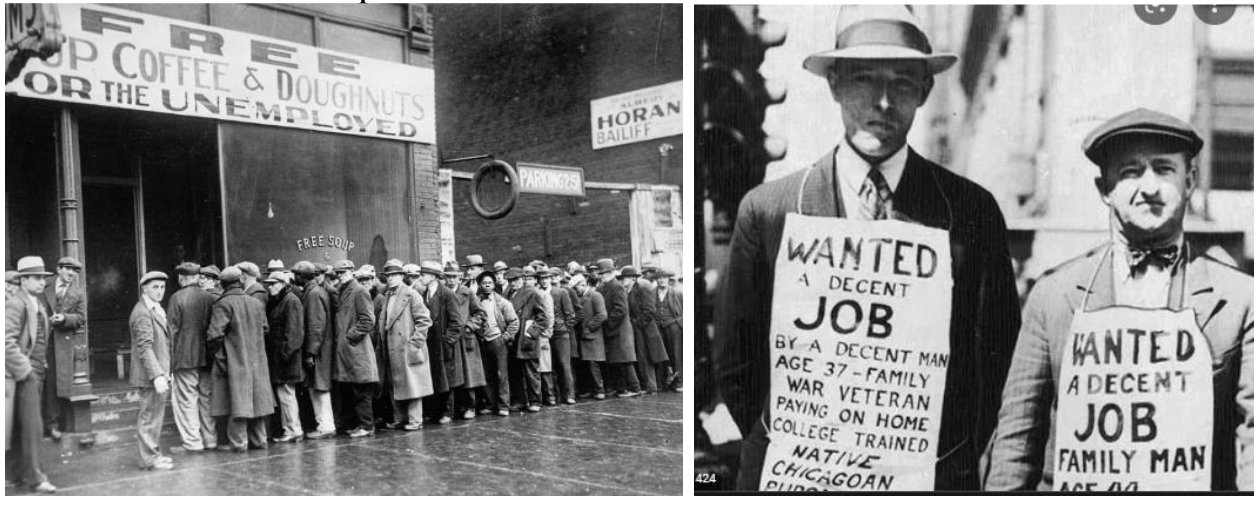 FREE
UP COFFEE & DOUGHNUTS
OR THE UNEMPLOYED
HORAN
BAILIFF
PARKING 25¢
FREE SOUP
WANTED
A DECENT
JOB
BY A DECENT MAN
AGE 37 - FAMILY
WAR VETERAN
PAYING ON HOME
COLLEGE TRAINED
NATIVE
CHICAGOAN
424
WANTED
A DECENT
JOB
FAMILY MAN
AGE 44